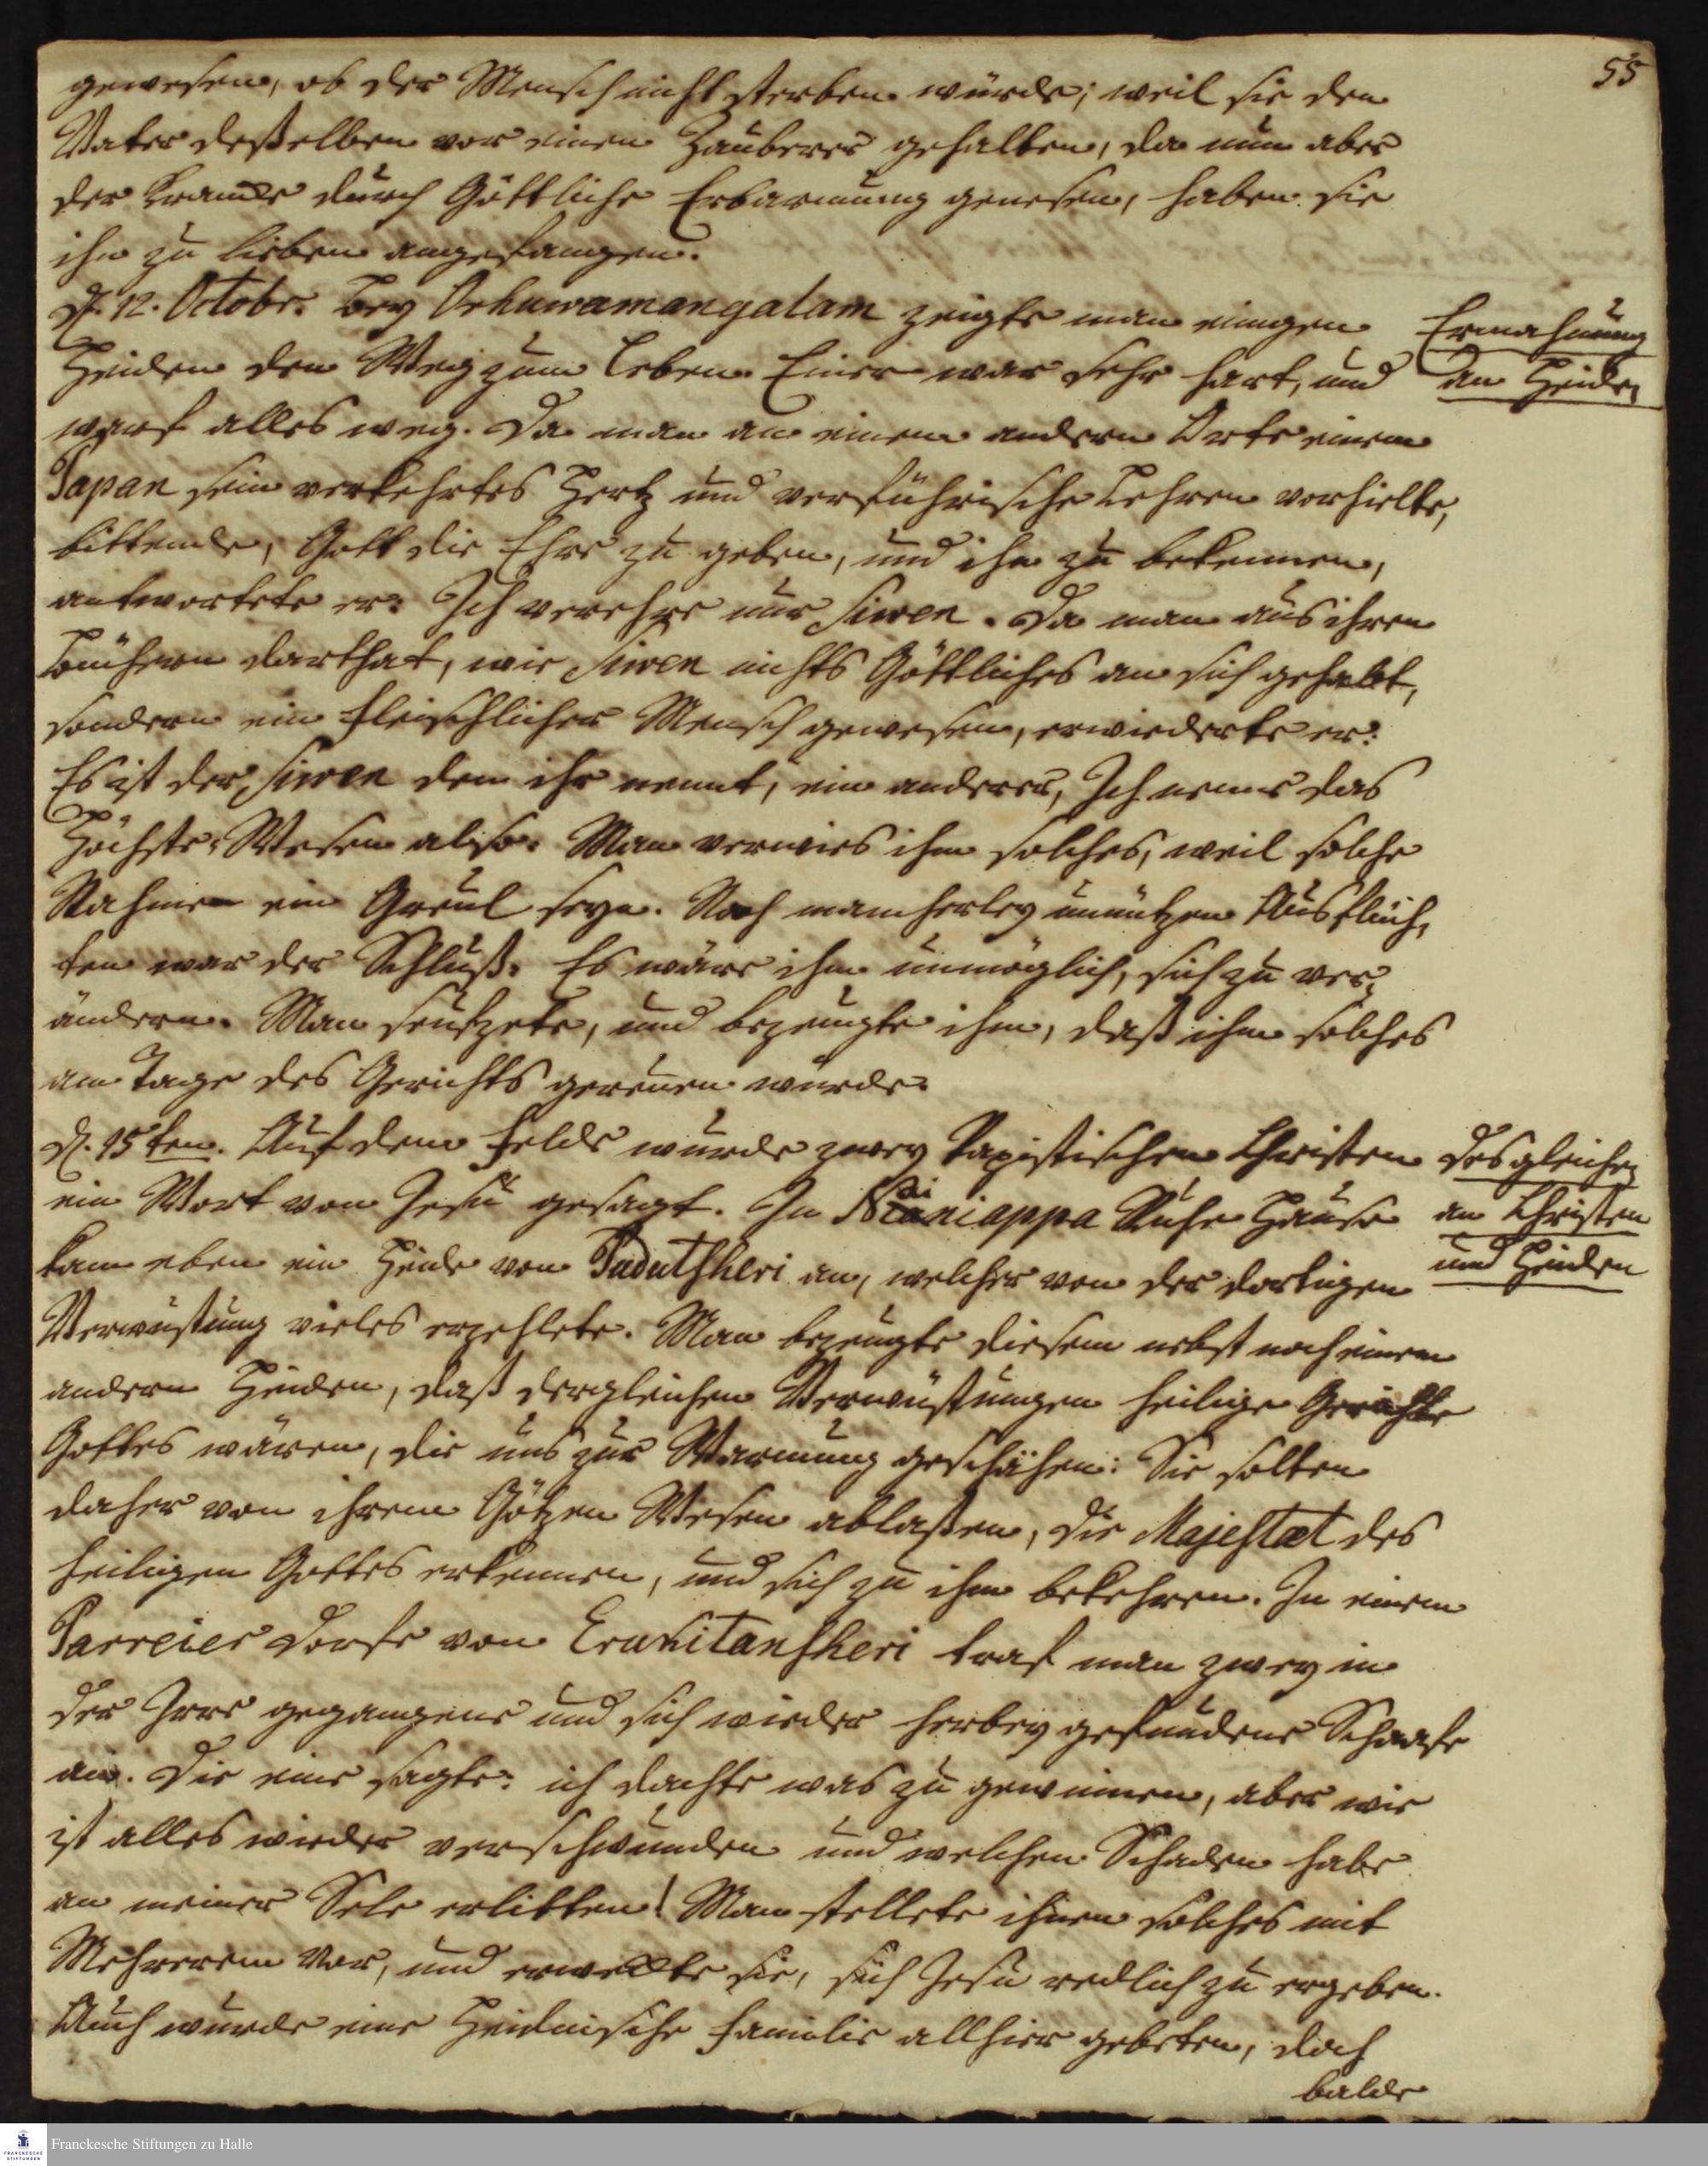 55
gewesen, ob der Mensch nicht sterben würde; weil sie den
Vater deßelben vor einen Zauberer gehalten, da nun aber
der Krancke durch Göttliche Erbarmung genesen, haben sie
ihn zu lieben angefangen.
d. 12. Octobr. Bey Orhuwamangalam zeigte man einigen
Heiden den Weg zum Leben. Einer war sehr hart, und
warf alles weg. Da man an einem andern Orte einem
Papan sein verkehrtes Hertz und verführische Lehren vorhielte,
bittende, Gott die Ehre zu geben, und ihn zu bekennen,
antwortete er: Ich verehre nur Siwen. Da man aus ihren
Büchern darthat, wie Siwen nichts Göttliches an sich gehabt,
sondern ein fleischlicher Mensch gewesen, erwiederte er:
Es ist der Siwen den ihr nennt, ein anderer, Ich nenne das
Höchste Wesen also. Man verwies ihm solches, weil solche
Nahmen ein Greul seyn. Nach mancherley unnützen Ausflüch,
ten war der Schluß: Es wäre ihm unmöglich, sich zu ver,
ändern. Man seufzete, und bezeugte ihm, daß ihm solches
am Tage des Gerichts gereuen würde.
Ermahnung
an Heiden
d. 15ten. Auf dem Felde wurde zwey Papistischen Christen
ein Wort von Jesu gesagt. In Nainiappa Ruhe Hause
kam eben ein Heide von Pudutsheri an, welcher von der dortigen
Verwüstung vieles erzehlete. Man bezeugte diesem nebst noch einem
andern Heiden, daß dergleichen Verwüstungen heilige Gerichte
Gottes wären, die uns zur Warnung geschähen: Sie solten
daher von ihrem Götzen Wesen ablaßen, die Majestæt des
heiligen Gottes erkennen, und sich zu ihm bekehren. In einem
Parreier Dorfe von Erukitansheri traf man zwey in
der Irre gegangene und sich wieder herbey gefundene Schaafe
an. Die eine sagte: ich dachte was zu gewinnen, aber wie
ist alles wieder verschwunden und welchen Schaden habe
an meiner Sele erlitten! Man stellete ihnen solches mit
Mehrerem vor, und erweckte sie, sich Jesu redlich zu ergeben.
Auch wurde eine Heidnische Familie allhier gebeten, doch
balde
desgleichen
an Christen
und Heiden
FRANCKESCHE
STIFTUNGEN
Franckesche Stiftungen zu Halle